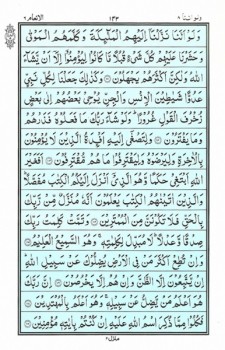 ولواننا ٨
١٤٣
الانعام ٦
وَلَوْ اَنَّنَا نَزَّلْنَاۤ اِلَيْهِمُ الْمَلٰٓئِكَةَ وَكَلَّمَهُمُ الْمَوْتٰى
وَحَشَرْنَا عَلَيْهِمْ كُلَّ شَىْءٍ قُبُلًا مَّا كَانُوْا لِيُؤْمِنُوْۤا اِلَّاۤ اَنْ يَّشَآءَ
اللّٰهُ وَلٰكِنَّ اَكْثَرَهُمْ يَجْهَلُوْنَ وَكَذٰلِكَ جَعَلْنَا لِكُلِّ نَبِىٍّ
عَدُوًّا شَيٰطِيْنَ الْاِنْسِ وَالْجِنِّ يُوْحِىْ بَعْضُهُمْ اِلٰى بَعْضٍ
زُخْرُفَ الْقَوْلِ غُرُوْرًا وَلَوْ شَآءَ رَبُّكَ مَا فَعَلُوْهُ فَذَرْهُمْ
وَمَا يَفْتَرُوْنَ وَلِتَصْغٰۤى اِلَيْهِ اَفْـِٕدَةُ الَّذِيْنَ لَا يُؤْمِنُوْنَ
بِالْاٰخِرَةِ وَلِيَرْضَوْهُ وَلِيَقْتَرِفُوْا مَا هُمْ مُّقْتَرِفُوْنَ اَفَغَيْرَ
اللّٰهِ اَبْتَغِىْ حَكَمًا وَّهُوَ الَّذِىْۤ اَنْزَلَ اِلَيْكُمُ الْكِتٰبَ مُفَصَّلًا
وَالَّذِيْنَ اٰتَيْنٰهُمُ الْكِتٰبَ يَعْلَمُوْنَ اَنَّهٗ مُنَزَّلٌ مِّنْ رَّبِّكَ
بِالْحَقِّ فَلَا تَكُوْنَنَّ مِنَ الْمُمْتَرِيْنَ وَتَمَّتْ كَلِمَتُ رَبِّكَ
صِدْقًا وَّعَدْلًا لَا مُبَدِّلَ لِكَلِمٰتِهٖ وَهُوَ السَّمِيْعُ الْعَلِيْمُ
وَاِنْ تُطِعْ اَكْثَرَ مَنْ فِى الْاَرْضِ يُضِلُّوْكَ عَنْ سَبِيْلِ اللّٰهِ
اِنْ يَّتَّبِعُوْنَ اِلَّا الظَّنَّ وَاِنْ هُمْ اِلَّا يَخْرُصُوْنَ اِنَّ رَبَّكَ
هُوَ اَعْلَمُ مَنْ يَّضِلُّ عَنْ سَبِيْلِهٖ وَهُوَ اَعْلَمُ بِالْمُهْتَدِيْنَ
فَكُلُوْا مِمَّا ذُكِرَ اسْمُ اللّٰهِ عَلَيْهِ اِنْ كُنْتُمْ بِاٰيٰتِهٖ مُؤْمِنِيْنَ
منزل ٢